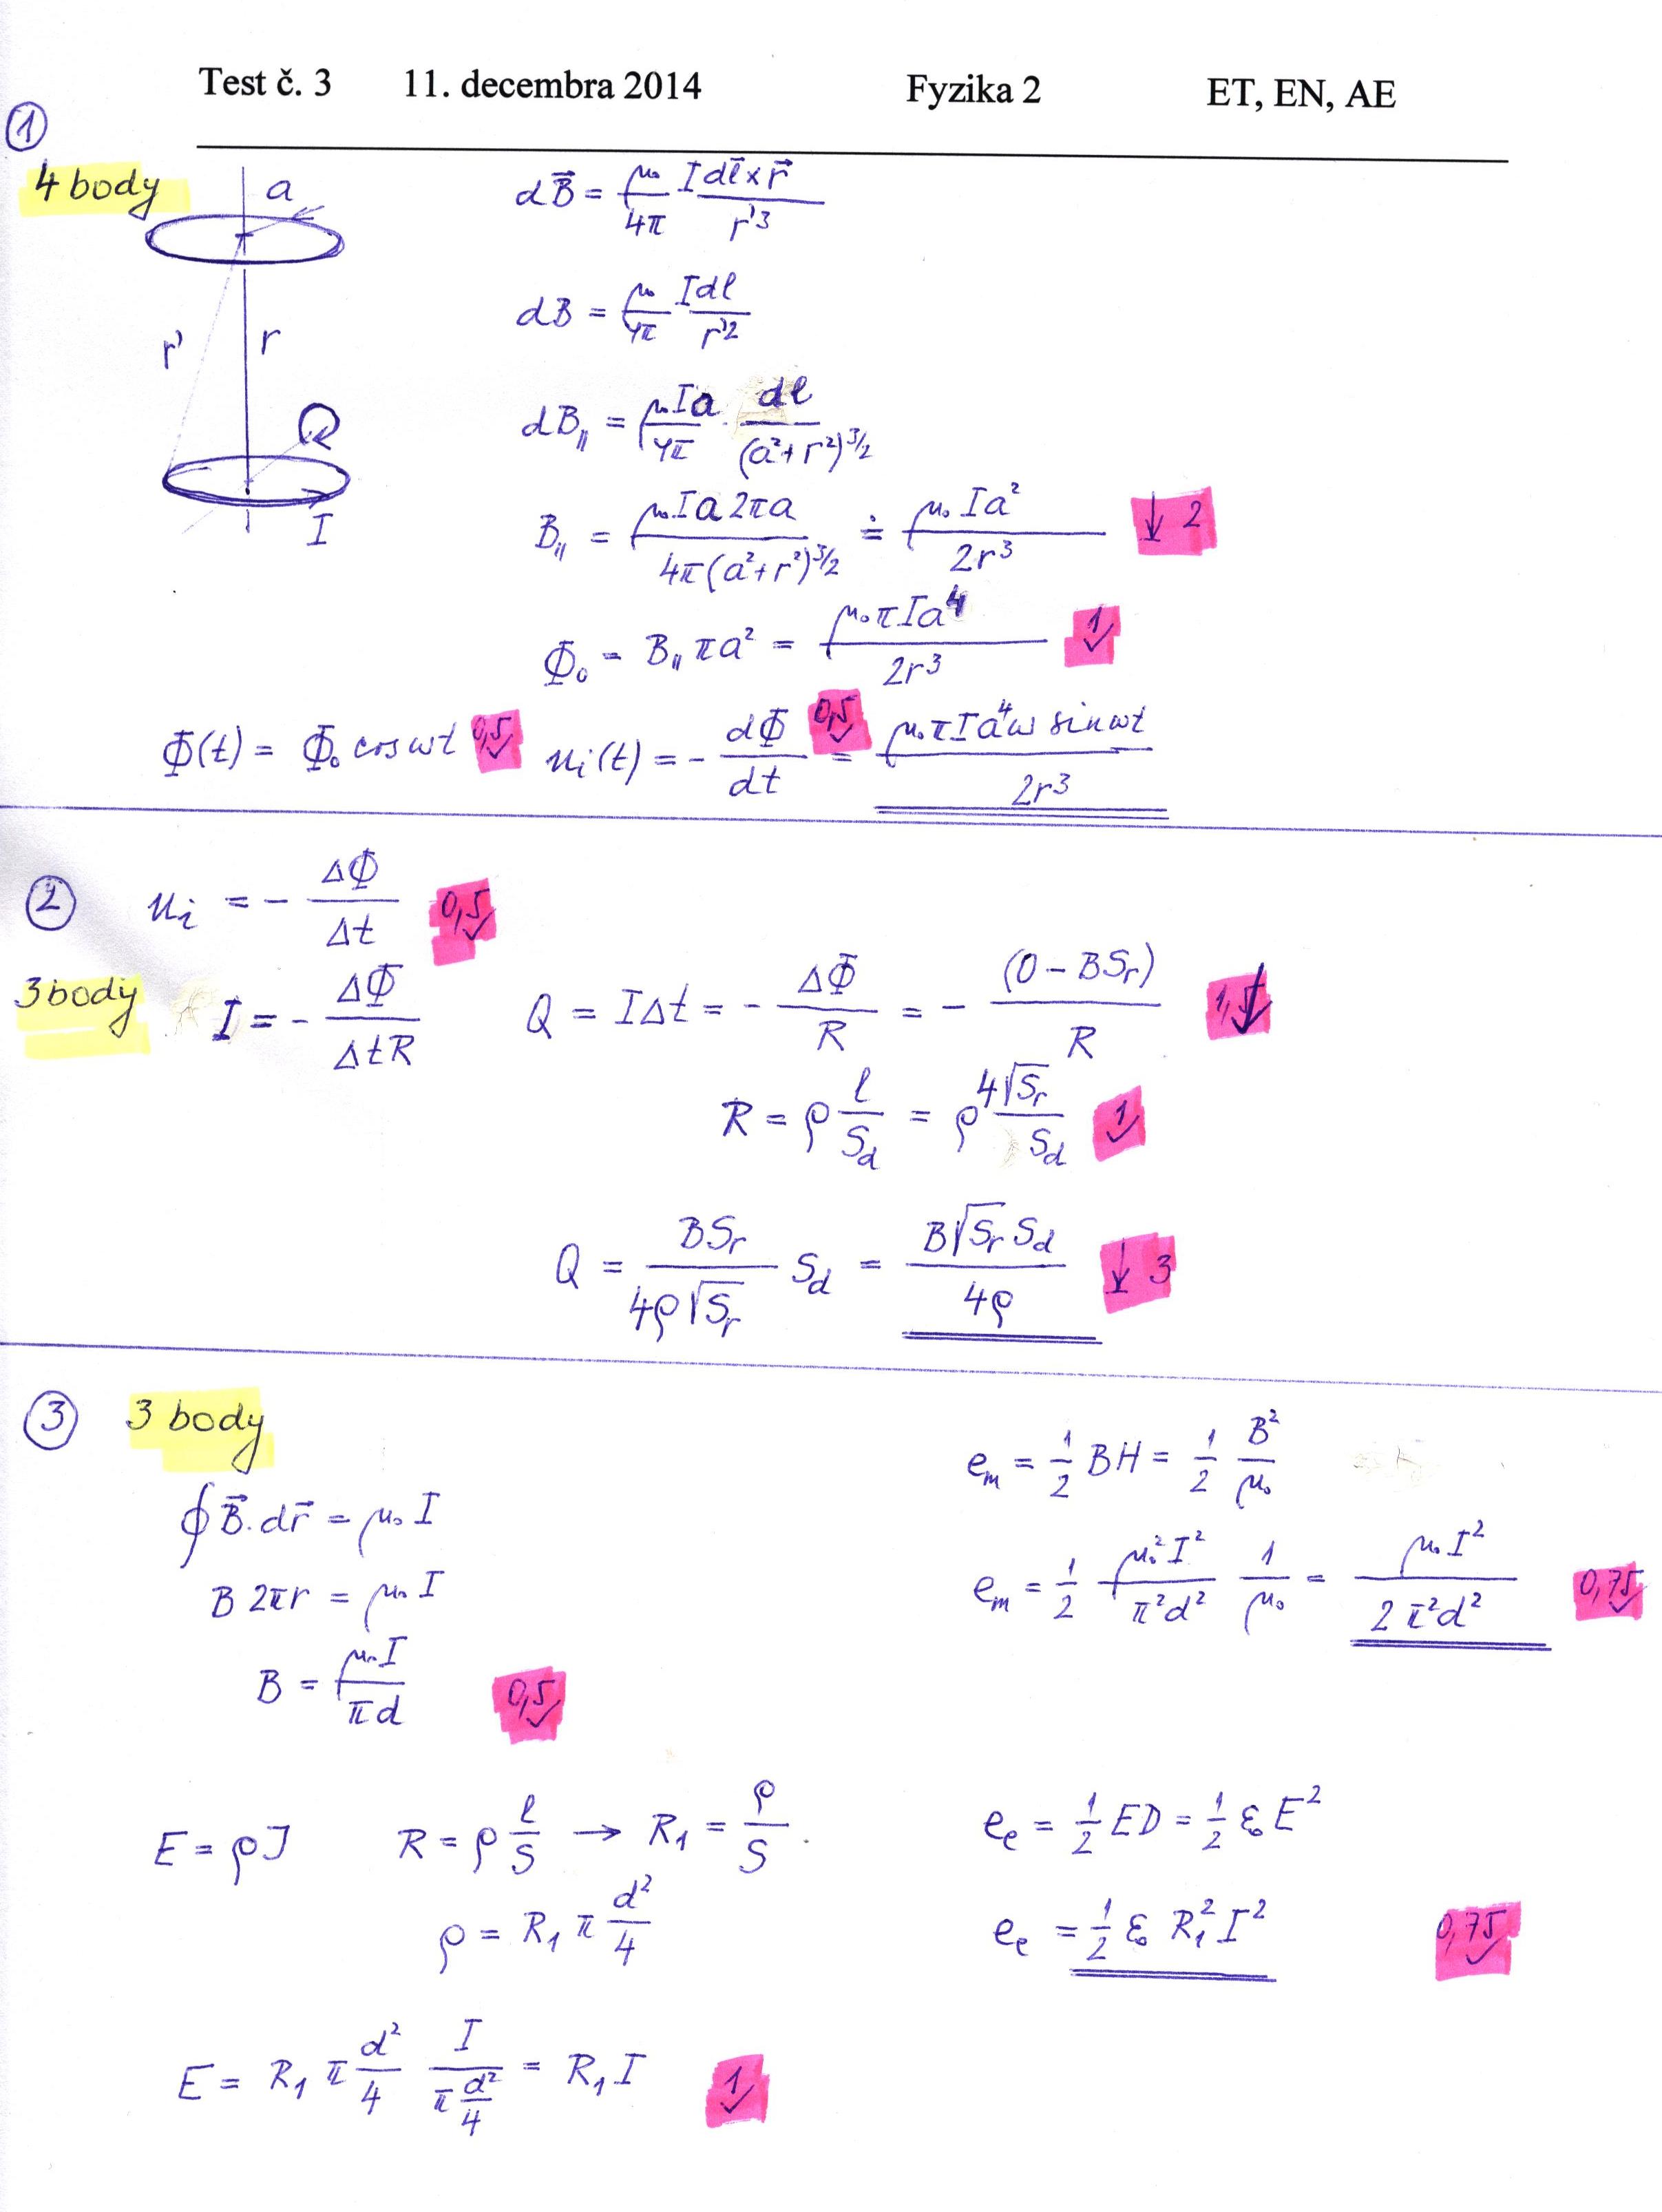 Test č. 3 11. decembra 2014 Fyzika 2 ET, EN, AE
①
4 body
a
r' r
I
dB⃗ = μ₀/4π I dl⃗ × r⃗ / r'³
dB = μ₀/4π I dl / r'²
dB∥ = μ₀Ia/4π · dl/(a²+r²)^3/2
B∥ = μ₀Ia2πa / 4π(a²+r²)^3/2 ≐ μ₀Ia² / 2r³ ↓ 2
Φ₀ = B∥πa² = μ₀πIa⁴ / 2r³ 1 ✓
Φ(t) = Φ₀ cos ωt 0,5 ✓ uᵢ(t) = - dΦ/dt 0,5 ✓ = μ₀πIa⁴ω sin ωt / 2r³
② uᵢ = - ΔΦ/Δt 0,5 ✓
3 body I = - ΔΦ/ΔtR Q = IΔt = - ΔΦ/R = - (0 - BSr)/R 1,5 ↓
R = ρ l/Sd = ρ 4√Sr/Sd 1 ✓
Q = BSr/4ρ√Sr Sd = B√Sr Sd/4ρ ↓ 3
③ 3 body
∮B⃗.dr⃗ = μ₀I
B 2πr = μ₀I
B = μ₀I/πd 0,5 ✓
eₘ = 1/2 BH = 1/2 B²/μ₀
eₘ = 1/2 μ₀²I²/π²d² 1/μ₀ = μ₀I²/2π²d² 0,75 ✓
E = ρJ R = ρ l/S → R₁ = ρ/S
ρ = R₁ π d²/4
E = R₁ π d²/4 I/(π d²/4) = R₁I 1 ✓
eₑ = 1/2 ED = 1/2 ε₀E²
eₑ = 1/2 ε₀ R₁²I² 0,75 ✓